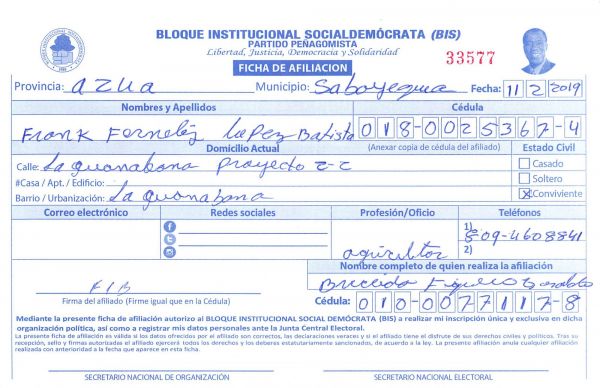 BLOQUE INSTITUCIONAL SOCIALDEMÓCRATA (BIS)
PARTIDO PEÑAGOMISTA
Libertad, Justicia, Democracia y Solidaridad
33577
FICHA DE AFILIACION
Provincia: Azua Municipio: Sabayegua Fecha: 11 2 2019
Nombres y Apellidos Cédula
Frank Lopez Batista 018-0025367-4
Domicilio Actual (Anexar copia de cédula del afiliado) Estado Civil
Calle: La guanabana proyecto 2-2 Casado
#Casa / Apt. / Edificio: Soltero
Barrio / Urbanización: La guanabana X Conviviente
Correo electrónico Redes sociales Profesión/Oficio Teléfonos
1) 809-4608841
2)
Nombre completo de quien realiza la afiliación
Firma del afiliado (Firme igual que en la Cédula)
Cédula: 010-0077117-8
Mediante la presente ficha de afiliación autorizo al BLOQUE INSTITUCIONAL SOCIAL DEMÓCRATA (BIS) a realizar mi inscripción única y exclusiva en dicha
organización política, así como a registrar mis datos personales ante la Junta Central Electoral.
La presente ficha de afiliación es válida si los datos ofrecidos por el afiliado son correctos, las declaraciones veraces y si el afiliado tiene el disfrute de sus derechos civiles y políticos. Tras su
recepción, sello y firmas autorizadas el afiliado ejercerá todos los derechos y los deberes estatutariamente sancionados, de acuerdo a la ley. La presente afiliación anula cualquier afiliación
realizada con anterioridad a la fecha que aparece en esta ficha.
SECRETARIO NACIONAL DE ORGANIZACIÓN SECRETARIO NACIONAL ELECTORAL